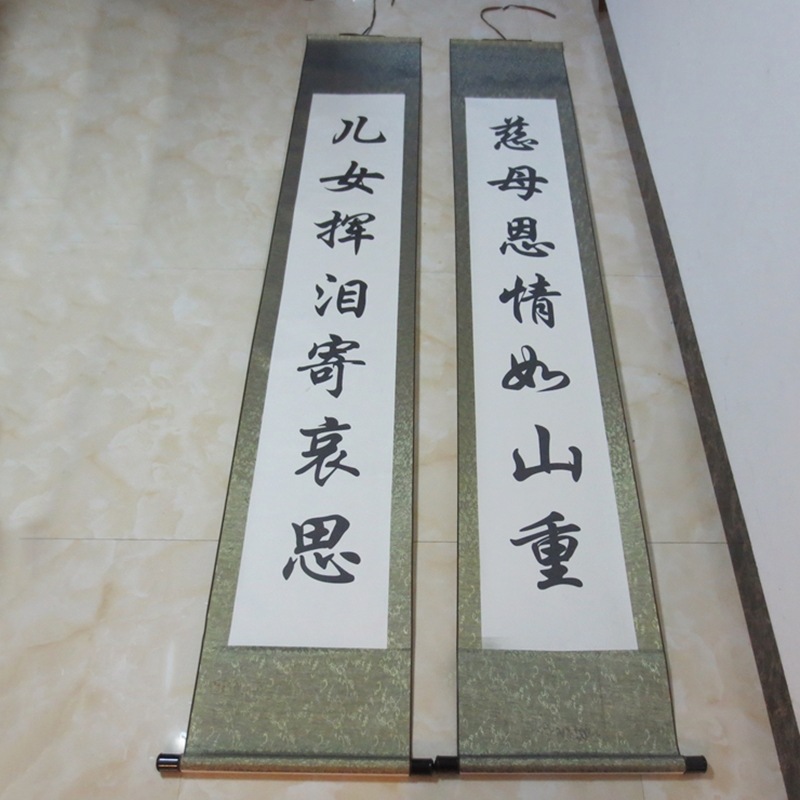 慈母恩情如山重
儿女挥泪寄哀思